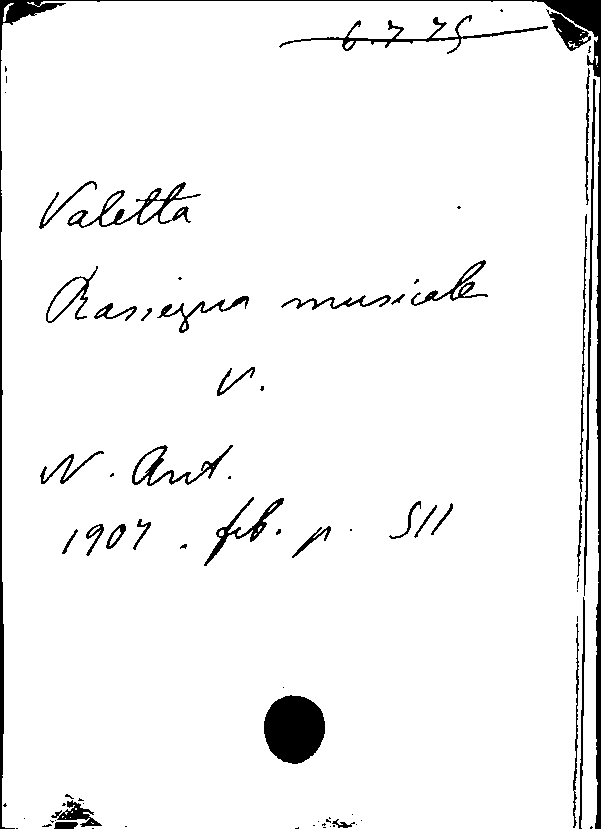 6.7.75
Valetta
Rassegna musicale
V.
N. Ant.
1907. feb. p. 511